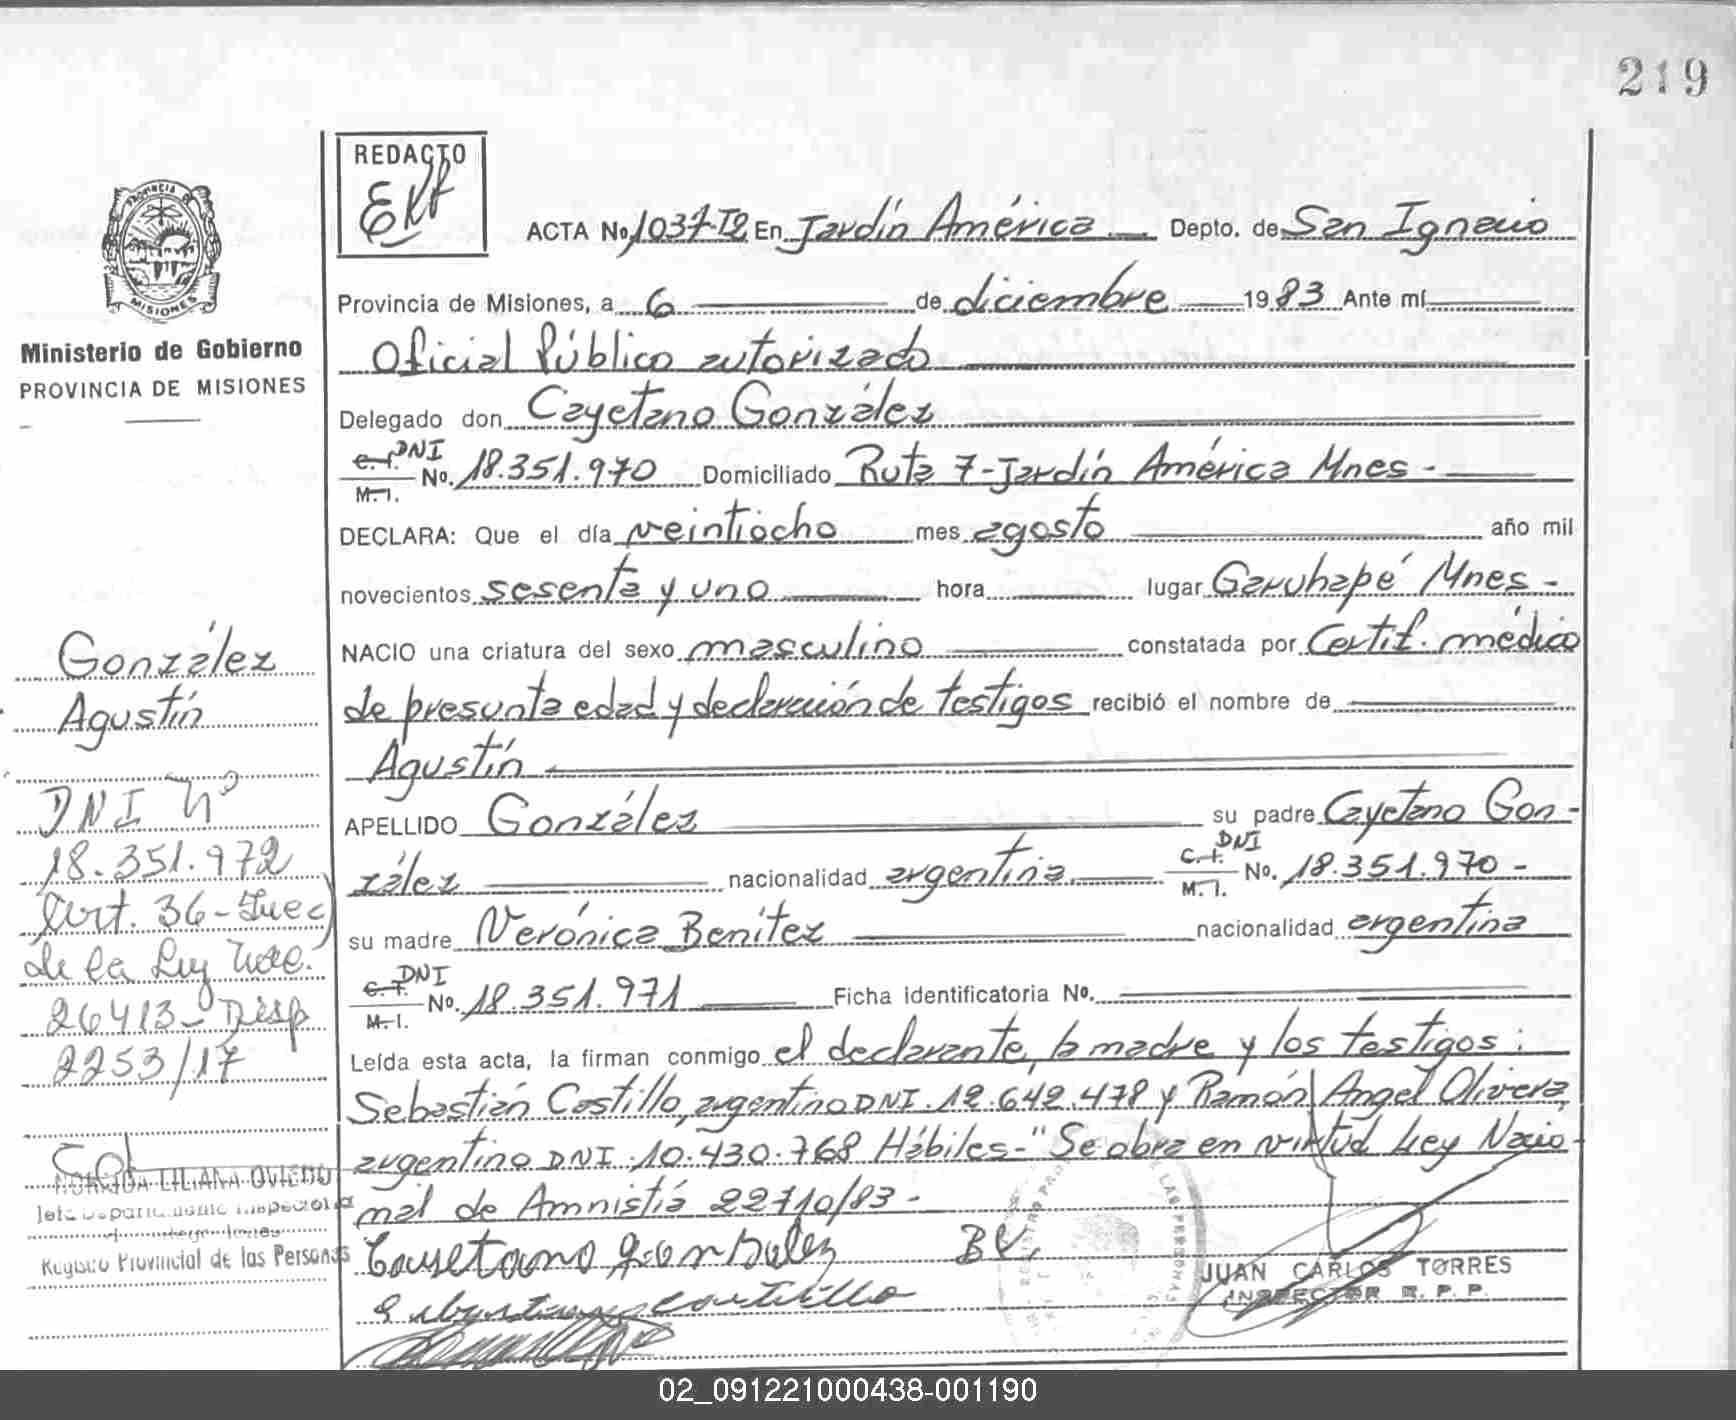 219
REDACTO
PROVINCIA DE
MISIONES
ACTA No 1037-T2 En Jardín América Depto. de San Ignacio
Provincia de Misiones, a 6 de diciembre 1983 Ante mí
Ministerio de Gobierno
PROVINCIA DE MISIONES
Oficial Público autorizado
Delegado don Cayetano González
C.I. DNI M.I. No. 18.351.970 Domiciliado Ruta 7-Jardín América Mnes -
DECLARA: Que el día veintiocho mes agosto año mil
novecientos sesenta y uno hora lugar Garuhapé Mnes -
NACIO una criatura del sexo masculino constatada por Certif. médico
de presunta edad y declaración de testigos recibió el nombre de
Agustín
APELLIDO González su padre Cayetano Gon-
zález nacionalidad argentina C.I. DNI M.I. No. 18.351.970 -
su madre Verónica Benítez nacionalidad argentina
C.I. DNI M.I. No. 18.351.971 Ficha identificatoria No.
Leída esta acta, la firman conmigo el declarante, la madre y los testigos:
Sebastián Costillo, argentino DNI. 12.642.478 y Ramón Angel Olivera,
argentino DNI. 10.430.768 Hábiles-" Se obra en virtud Ley Nacio-
nal de Amnistía 22710/83 -
Cayetano Gonzalez B V.
JUAN CARLOS TORRES
INSPECTOR R. P. P.
González
Agustín
DNI Nº
18.351.972
Art. 36-
de la Ley Nac.
26413- Disp
2253/17
LILIANA OVIEDO
Registro Provincial de las Personas
02_091221000438-001190